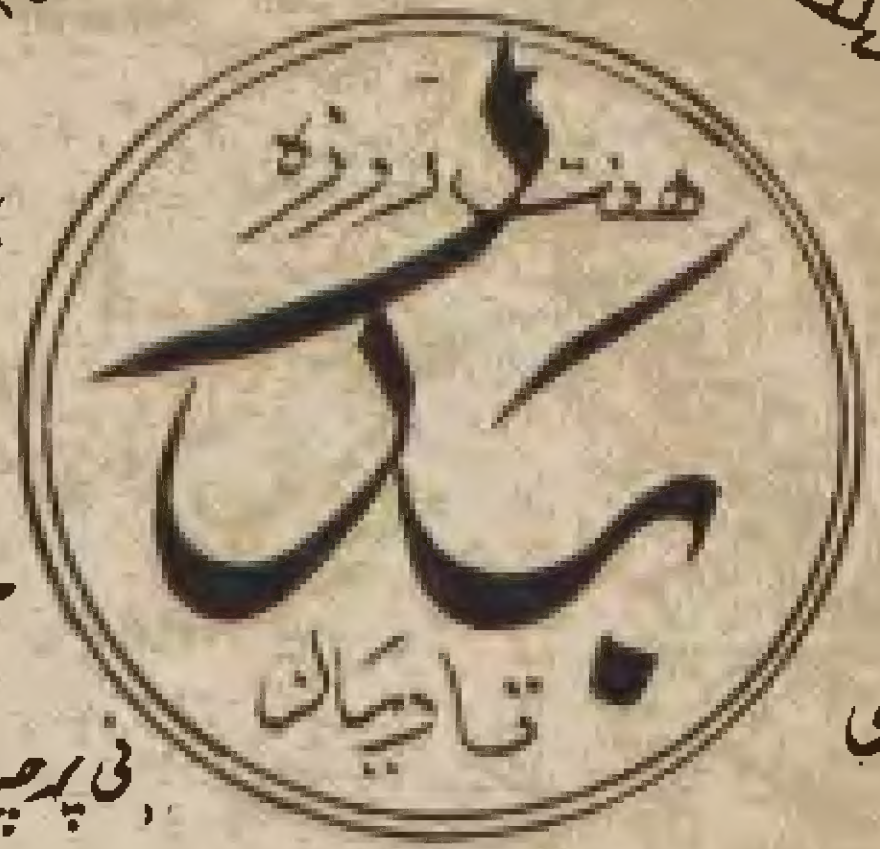 ہفت روزہ
بدر
قادیان
فی پرچہ